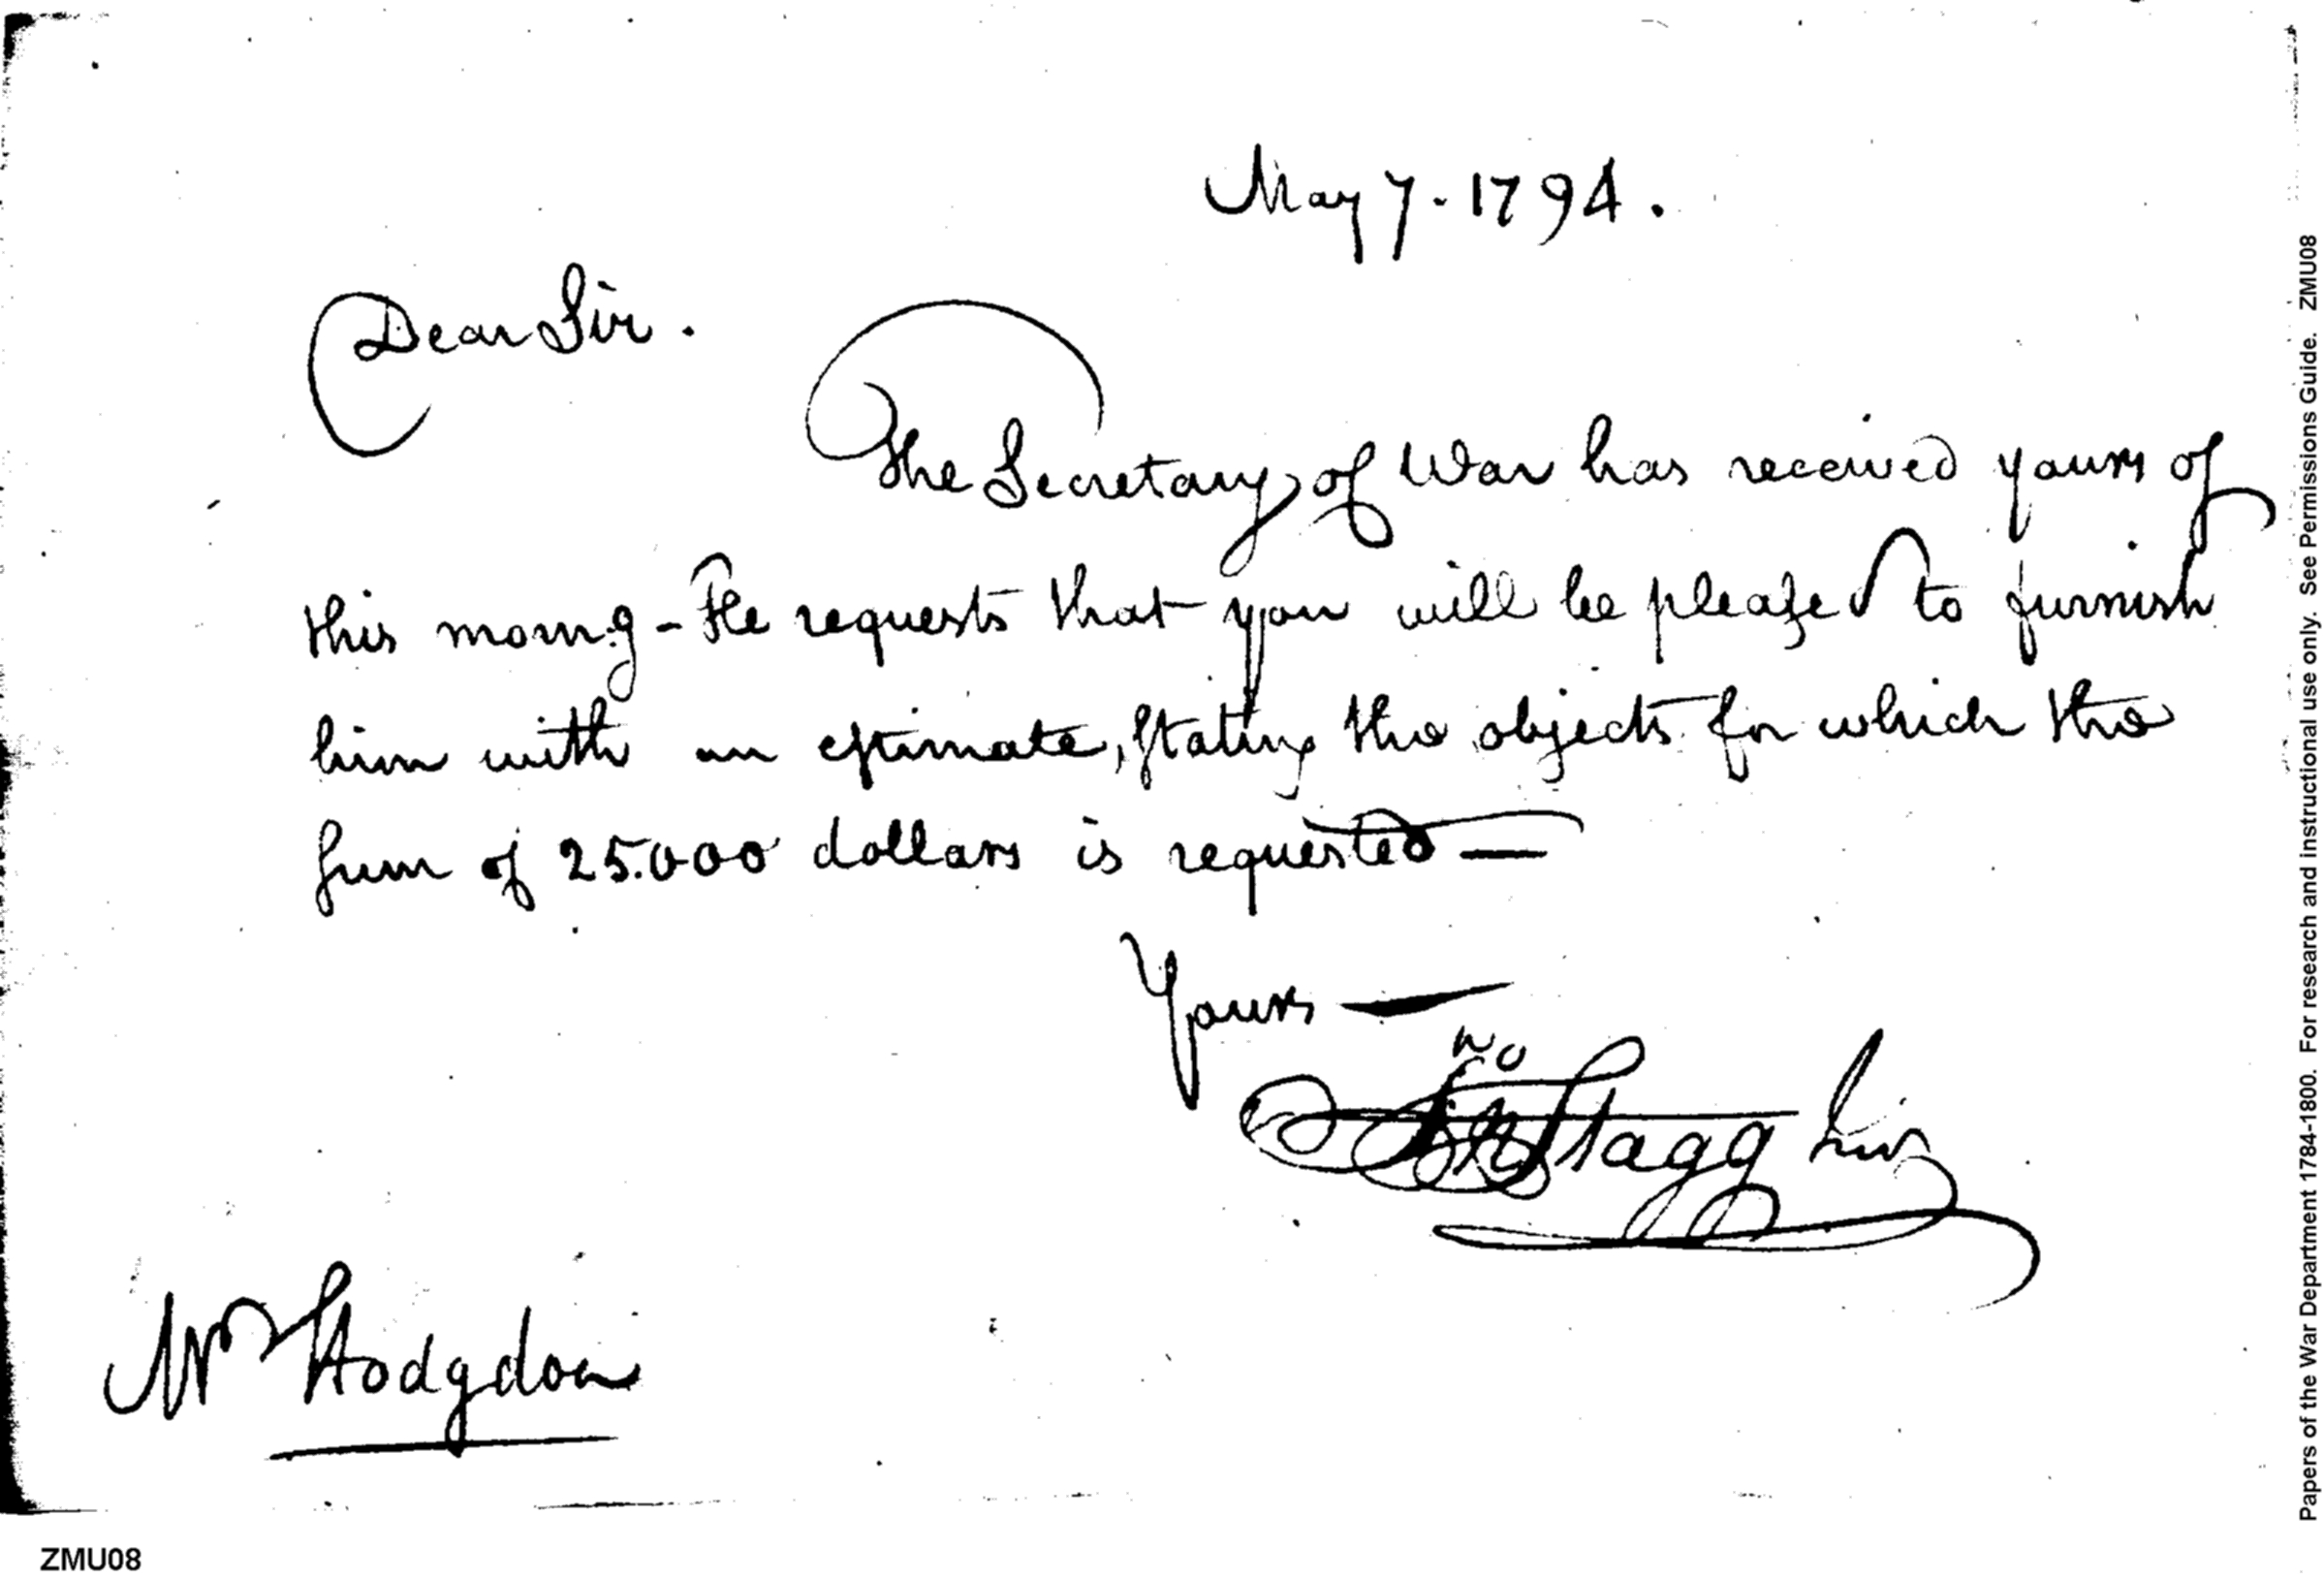 May 7. 1794.
Dear Sir.
The Secretary of War has received yours of
this morng - He requests that you will be pleased to furnish
him with an estimate, stating the objects for which the
sum of 25.000 dollars is requested —
Yours —
Jno Stagg Junr
Mr Hodgdon
ZMU08
Papers of the War Department 1784-1800. For research and instructional use only. See Permissions Guide. ZMU08